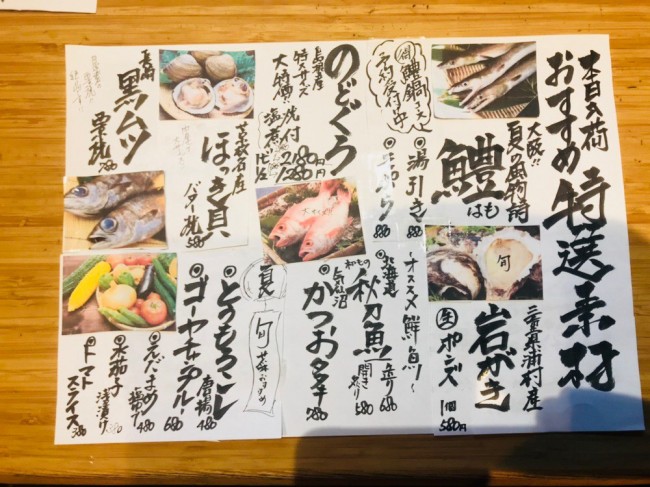 本日入荷
おすすめ特選素材
大阪!!
夏の風物詩
鱧
はも
湯引き 880
予約受付中
三重県浦村産
岩がき
生 ポンズ
1個 580円
旬
のどぐろ
特大サイズ
大特価!!
焼付 2180円
塩煮 1280円
オススメ鮮魚!
北海道
秋刀魚
造り 680
開き炙り 580
気仙沼
かつおタタキ
780
黒ムツ
780
苫小牧産
ほっき貝
バター焼 580
夏
旬
とうもろこし
唐揚 480
ゴーヤチャンプルー 680
えだまめ
480
水茄子
浅漬け 580
トマト
スライス 380